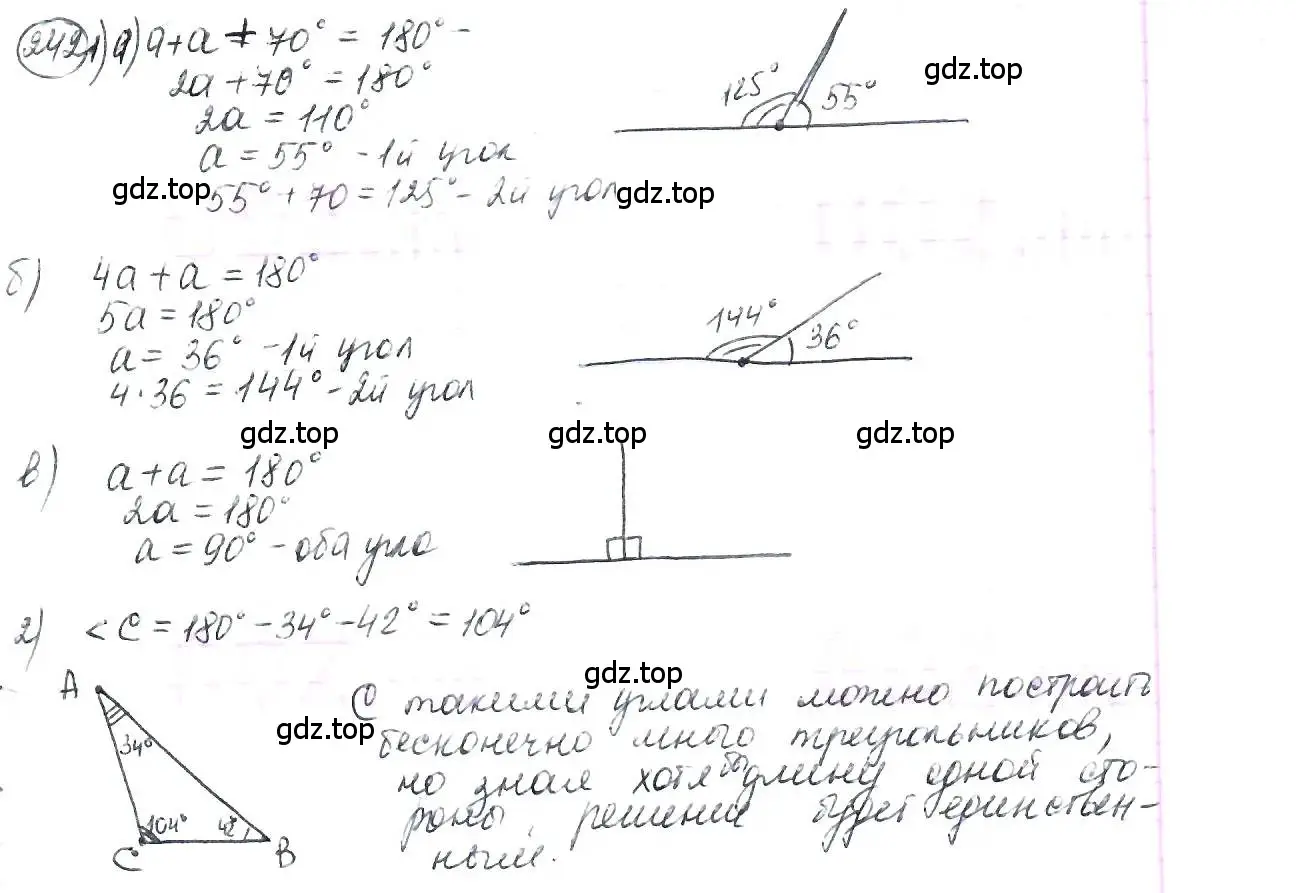 242 1) а) a + a + 70° = 180° -
2a + 70° = 180°
2a = 110°
a = 55° - 1й угол
55° + 70 = 125° - 2й угол
125° 55°
gdz.top
gdz.top
gdz.top
б) 4a + a = 180°
5a = 180°
a = 36° - 1й угол
4 · 36 = 144° - 2й угол
144° 36°
gdz.top
gdz.top
gdz.top
в) a + a = 180°
2a = 180°
a = 90° - оба угла
2) < C = 180° - 34° - 42° = 104°
A
34°
104° 42°
C B
gdz.top
gdz.top
С такими углами можно построить
бесконечно много треугольников,
но зная хотя бы длину одной сто-
роны, решение будет единствен-
ным.